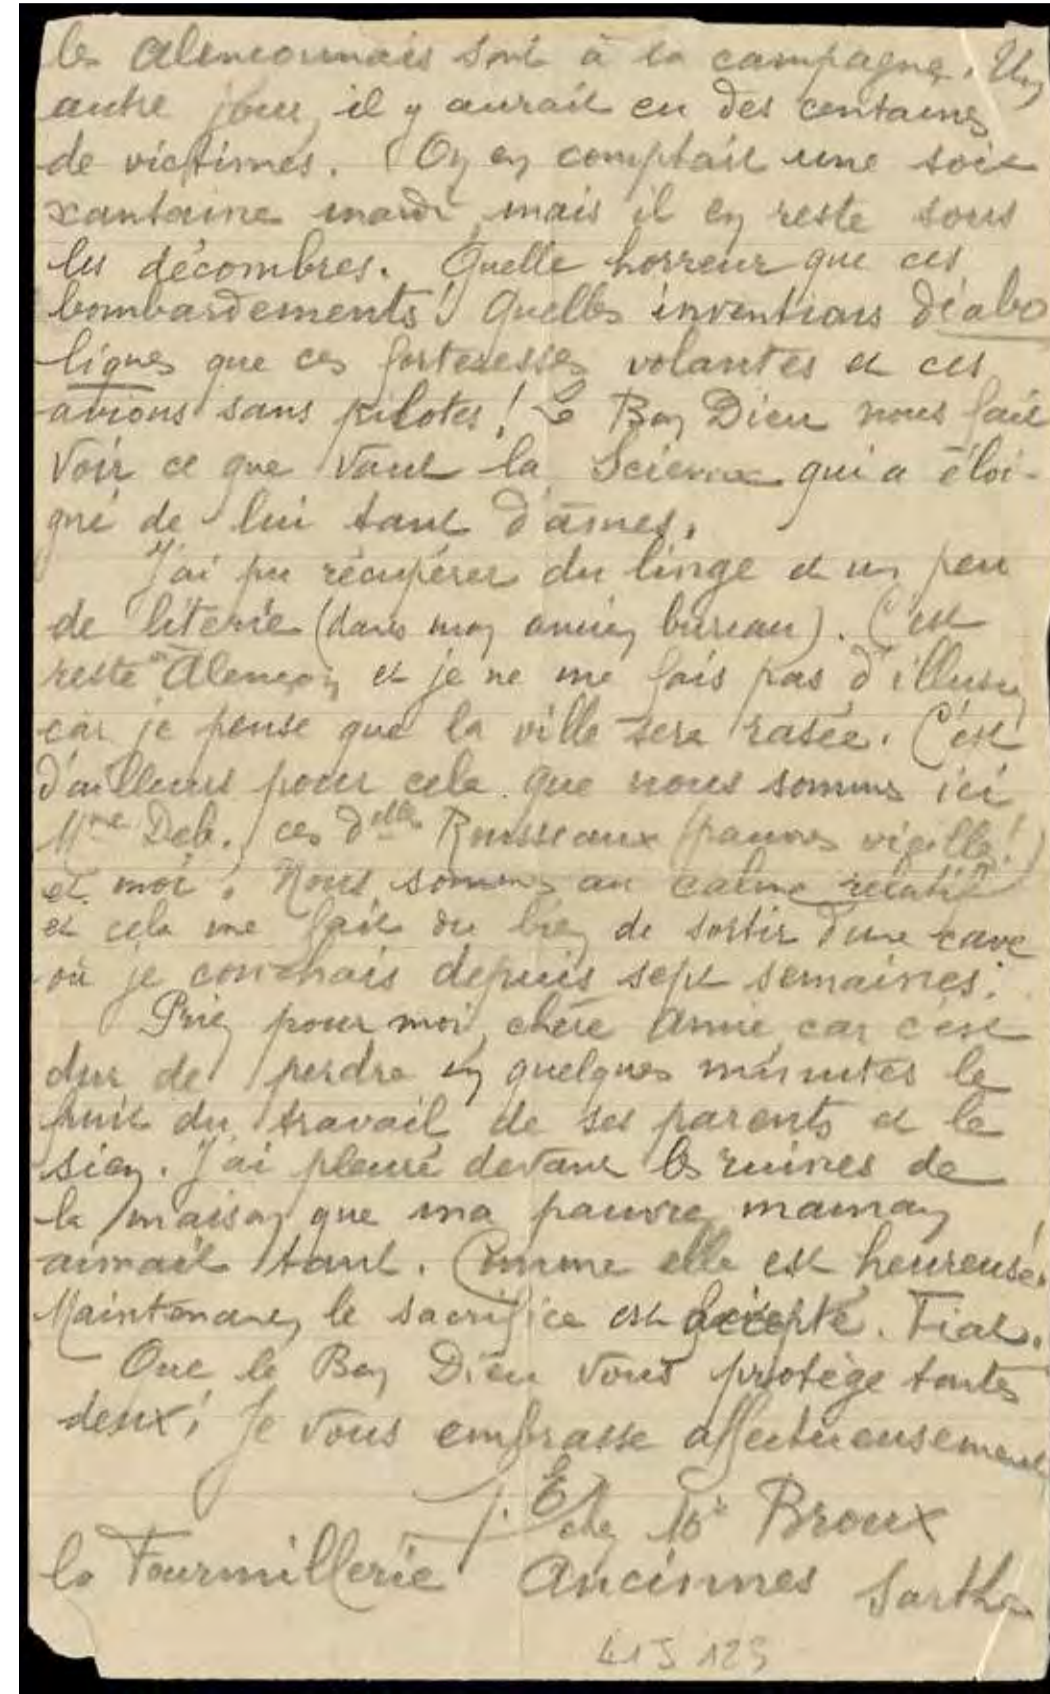 les Alençonnais sont à la campagne. Un
autre jour, il y aurait eu des centaines
de victimes. On en comptait une soi-
xantaine mardi, mais il en reste sous
les décombres. Quelle horreur que ces
bombardements! Quelles inventions diabo
liques que ces forteresses volantes et ces
avions sans pilotes! Le Bon Dieu nous fait
voir ce que vaut la Science qui a éloi-
gné de lui tant d'âmes.
J'ai pu récupérer du linge et un peu
de literie (dans mon ancien bureau). C'est
resté à Alençon, et je ne me fais pas d'illusion
car je pense que la ville sera rasée. C'est
d'ailleurs pour cela que nous sommes ici
Mme Deb., ces delles Rousseaux (pauvres vieilles!)
et moi. Nous sommes au calme relatif
et cela me fait du bien de sortir d'une cave
où je couchais depuis sept semaines.
Priez pour moi, chère Annie, car c'est
dur de perdre en quelques minutes le
fruit du travail de ses parents et le
sien. J'ai pleuré devant les ruines de
la maison que ma pauvre maman
aimait tant. Comme elle est heureuse!
Maintenant, le sacrifice est accepté. Fiat.
Que le Bon Dieu vous protège toutes
deux! Je vous embrasse affectueusement
J. E
chez Mr Broux
la Fourmillerie Ancinnes Sarthe
41 J 123